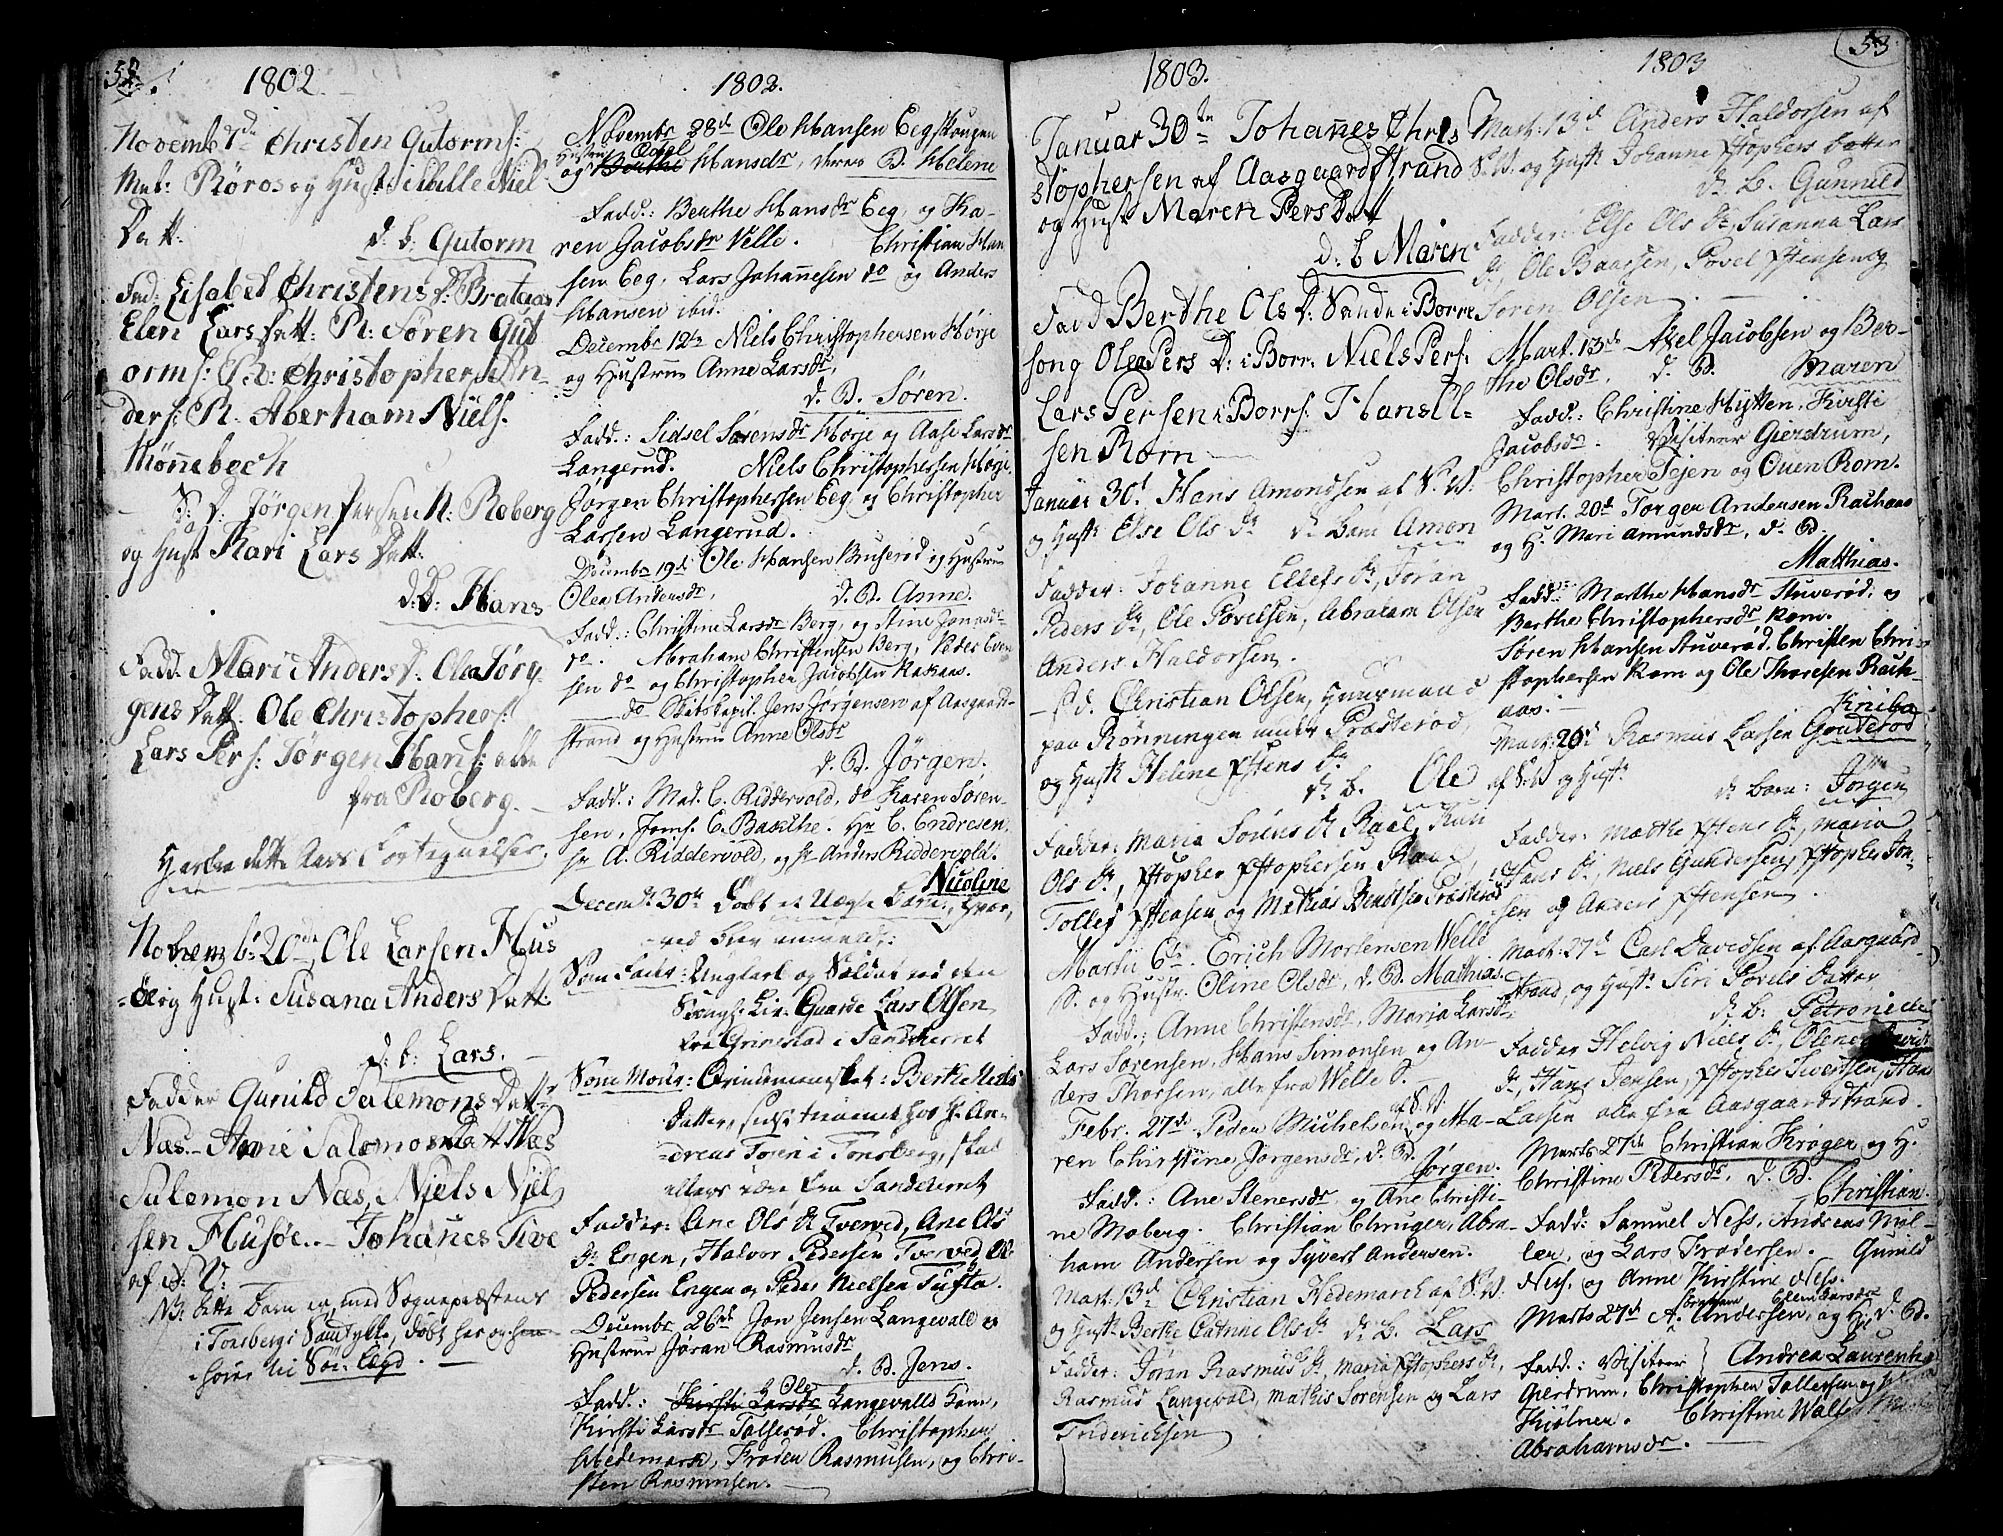 52.
1802.
Novemb 7de Christen Gutorms:
Mat: Røros og Hust: Sibille Niels
Datt:
d: b: Gutorm
Fad: Lisabet Christens D: Brataas
Elen Lars Datt: R: Søren Gut
orms: R: Christopher An-
ders: R. Aberham Niels.
Mønnebech
S: D: Jørgen Persen N: Roberg
og Hust Kari Lars Datt:
d: D: Hans
Fadd: Mari Anders D. Olea Jørg
gens Datt. Ole Christophers:
Lars Pers: Jørgen Hans: alle
fra Roberg.
Novemb: 20de Ole Larsen Hus
øe og Hust: Susana Anders Datt:
d: b: Lars.
Fadder Gunild Salemons Datt
Næs - Anne Salomons Datt Næs
Salemon Næs, Niels Niel
sen Husøe. - Johanes Tive
af S. V:
NB: dette Barn er med Sognepræstens
i Tønsbergs Samtykke, døbt her og hen-
hører til Søi: Lagd.
1802.
Novembr 28d Ole Hansen Eeg Skougen
og Hustrue Berthe Hansdr, deres B. Helene
Fadd.: Berthe Hansdr Eeg, og Ka-
ren Jacobsdr Velle. Christian Han
sen Eeg, Lars Johannesen do og Anders
Hansen ibid.
Decembr 12te Niels Christophersen Horje
og Hustrue Anne Larsdr,
d. B. Søren.
Fadd.: Sidsel Sørensdr Horje og Aase Larsdr
Langerud. Niels Christophersen Horje,
Jørgen Christophersen Eeg og Christopher
Larsen Langerud.
Decembr 19de Ole Hansen Bruserød og Hustrue
Olea Andersdr, d. B. Anne.
Fadd.: Christine Larsdr Berg, og Stine Jonsdr
do. Abraham Christensen Berg, Peder Even
sen do og Christopher Jacobsen Rakaas.
do Skibskapit. Jens Jørgensen af Aasgaard-
strand og Hustrue Anne Olsdr
d. B. Jørgen.
Fadd.: Mad. C. Riddervold, do Karen Søren-
sen, Jomf. C. Basthe. Hr C. Endresen
Hr A. Riddervold, og Hr Anders Riddervold.
Nicoline
Decembr 30te Døbt et Uægte Barn,
Som Fader: Ungkarl og Soldat ved den
Kongl: Liv: Guarde Lars Olsen
fra Grimestad i Sandeherret
Som Moder: Qvindemennesket: Berthe Niels
Datter, sidst tienende hos Hr An-
dreas Foien i Tønsberg, skal
ellers være fra Sandeherret
Fadder: Ane Ols Dr Tverved, Ane Ols
Dr Engen, Halvor Pedersen Tverved, Ole
Pedersen Engen og Peder Nielsen Tufta.
Decembr 26de Jon Jensen Langevald og
Hustrue Jøran Rasmusdr
d. B. Jens.
Fadd.: Kirsti Larsdr Ole Langevalls Kone,
Kirsti Larsdr Tolserød. Christopher
Hedemark, Froden Rasmusen, og Chri-
sten Rasmusen.
1803.
Januar 30te Johannes Chris
stophersen af Aasgaardstrand
og Hust Maren Pers Datt
d: b Maren
Fadd Berthe Ols D: Sande i Borre
sogn Olea Pers D: i Borr: Niels Pers:
Lars Persen i Borrs: Hans Ol-
sen Rørn
Januar 30t Hans Amondsen af S. V:
og Hustr Else Ols Dr dr Barn Amon
Fadder: Johanne Ellefs Dr, Jøran
Peders Dr, Ole Povelsen, Abraham Olsen
Anders Haldorsen.
S d. Christian Olsen, Huusmand
paa Rønningen under Præsterød,
og Hustr Helene Xstens Dr
dr b. Ole
Fadder: Maria Sørens Dr Raal, Kari
Ols Dr, Xstopher Xstophersen Raae,
Tollef Xstensen og Mathias Bendtsen Præsterød
Martii 6te. Erich Mortensen Welle
S. og Hustr. Oline Olsdr, d. B. Mathias
Fadd.; Anne Christensdr, Maria Larsdr
Lars Sørensen, Hans Simonsen og An-
ders Thorsen, alle fra Welle S.
Febr. 27de Peder Michelsen af S. V. og Ma-
ren Christine Jørgensdr, d. B.
Jørgen.
Fadd.: Ane Stenersdr og Ane Christi-
ne Moberg. Christian Chruger, Abra-
ham Andersen og Syvert Andersen.
Mart. 13d Christian Hedemarck af S. V.
og Hustr Berthe Catrine Ols Dr dr b. Lars
Fadder: Jøran Rasmus Dr, Maria Xstophers Dr,
Rasmus Langevald, Mathis Sørensen og Lars
Fridericksen
1803
53
Mart. 13d Anders Haldorsen af
S. V. og Hustr Johanne Xstophers Datter
dr b. Gunnild
Fadder: Else Ols Dr, Susanna Lars
Dr, Ole Baarsen, Povel Xstensen og
Søren Olsen.
Mart. 13de Axel Jacobsen og Ber-
the Olsdr, d. B. Maren
Fadd.: Christine Hytten, Kirsti
Jacobsdr. Visiteur Gierdrum,
Christopher Tejen og Ouen Rom.
Mart. 20d Jørgen Andersen Rachaas
og H. Mari Amundsdr, d. B.
Matthias.
Fadd: Marthe Hansdr Stuverød, og
Berthe Christophersdr Rom.
Søren Hansen Stuverød, Christen Chri-
stophersen Rom og Ole Thoresen Rach-
aas.
Mart: 20d Rasmus Larsen Gouterød
af S. V og Hustr.
dr Barn: Jørgen
Fadder: Marthe Xstens Dr, Maria
Hans Dr, Niels Gundersen, Xstopher Jon-
sen og Anders Xstensen.
Mart: 27d Carl Davidsen af Aasgaard-
strand, og Hustr. Siri Povels Datter
dr b: Petronille
Fadder Helvig Niels Dr, Olene
Dr, Hans Jensen, Xstopher Sivertsen, Hans
Larsen alle fra Aasgaardstrand.
Marts 27de Christian Krøger og H.
Christine Pedersdr, d. B.
Christian.
Fadd: Samuel Ness, Andreas Møl-
ler, og Lars Frodersen. Gunild
Ness. og Anne Kirstine Ness.
Marts 27de Abraham Andersen, og H. Elen Larsdr d. B.
Andrea Laurentia
Fadd.: Visiteur
Gierdrum, Christopher Tollefsen og
Kiølner. Christine Walle
Abrahamsdr.